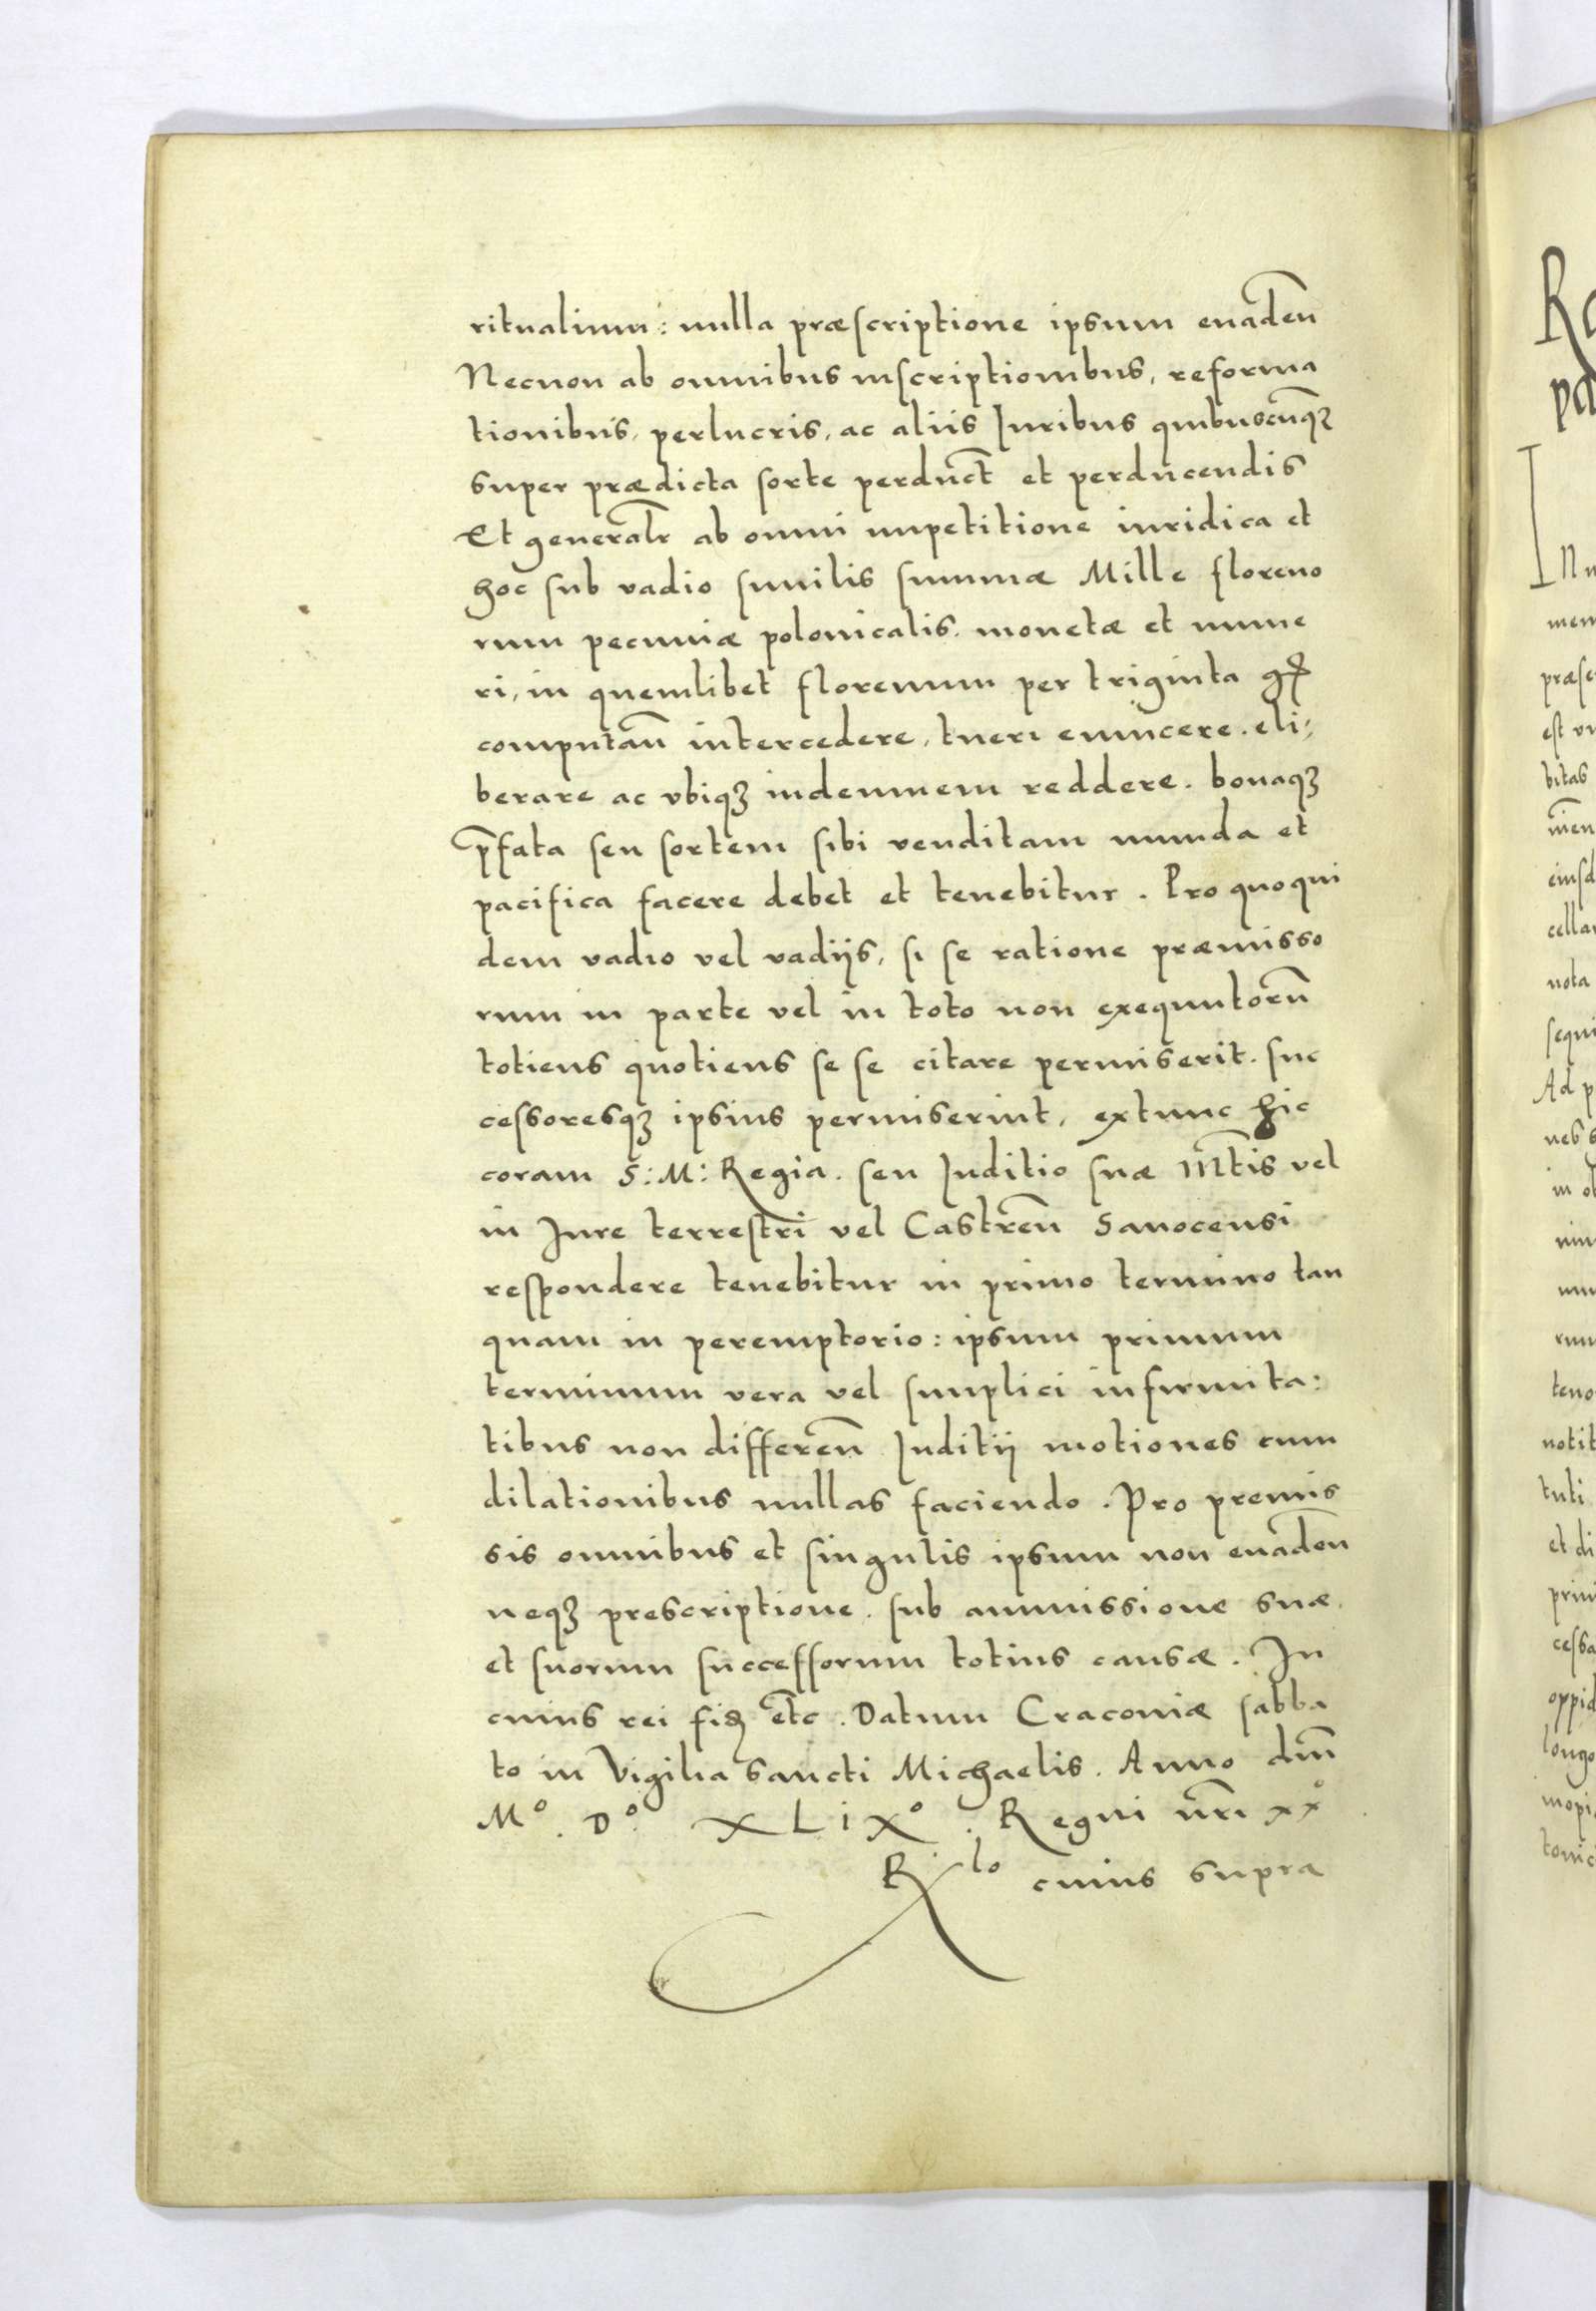 ritualium: nulla præscriptione ipsum euadeñ
Necnon ab omnibus inscriptionibus, reforma
tionibus, perlucris, ac aliis Iuribus quibuscūqꝫ
super prædicta sorte perduct̄ et perducendis
Et generalr̄ ab omni impetitione iuridica et
hoc sub vadio similis summæ Mille floreno
rum pecuniæ polonicalis. monetæ et nume
ri, in quemlibet florenum per triginta
computan̄ intercedere, tueri euincere. eli;
berare ac vbiqꝫ indemnem reddere. bonaqꝫ
p̄fata seu sortem sibi venditam munda et
pacifica facere debet et tenebitur. Pro quoqui
dem vadio vel vadiis, si se ratione præmisso
rum in parte vel in toto non exequutorū
totiens quotiens se se citare permiserit. suc
cessoresqꝫ ipsius permiserint, extunc hic
coram S: M: Regia. seu Iuditio suæ Mt̄is vel
in Iure terrestri vel Castreñ Sanocensi
respondere tenebitur in primo termino tan
quam in peremptorio: ipsum primum
terminum vera vel simplici infirmita:
tibus non differeñ Iuditij motiones cum
dilationibus nullas faciendo. Pro premis
sis omnibus et singulis ipsum non euadeñ
neqꝫ prescriptione. sub ammissione suæ
et suorum successorum totius causæ. In
cuius rei fiꝫ et̄c. Datum Cracouiæ sabba
to in Vigilia sancti Michaelis. Anno dn̄i
Mº. Dº. XLiXº. Regni nr̄i xxº
R lo cuius supra
Nu
præse
bitas
eiusd
cella
nota
sequi
Ad p
teno
notit
tuti
et di
oppid
longo